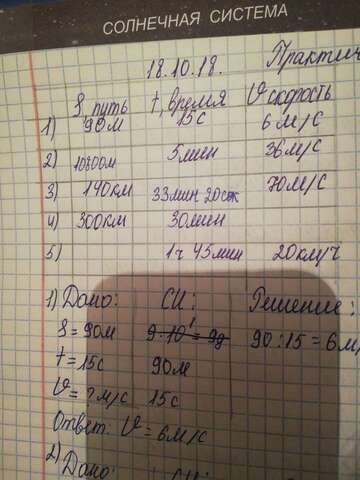 СОЛНЕЧНАЯ СИСТЕМА
18.10.18. Практич
S путь t, время V скорость
1) 90м 15с 6м/с
2) 10800м 5мин 36м/с
3) 140км 33мин 20сек 70м/с
4) 300км 30мин
5) 1ч 45мин 20км/ч
1) Дано: СИ: Решение:
S = 90м 9·10¹=90 90:15=6м/
t = 15с 90м
V = ?м/с 15с
Ответ. V = 6м/с
2) Дано: СИ: